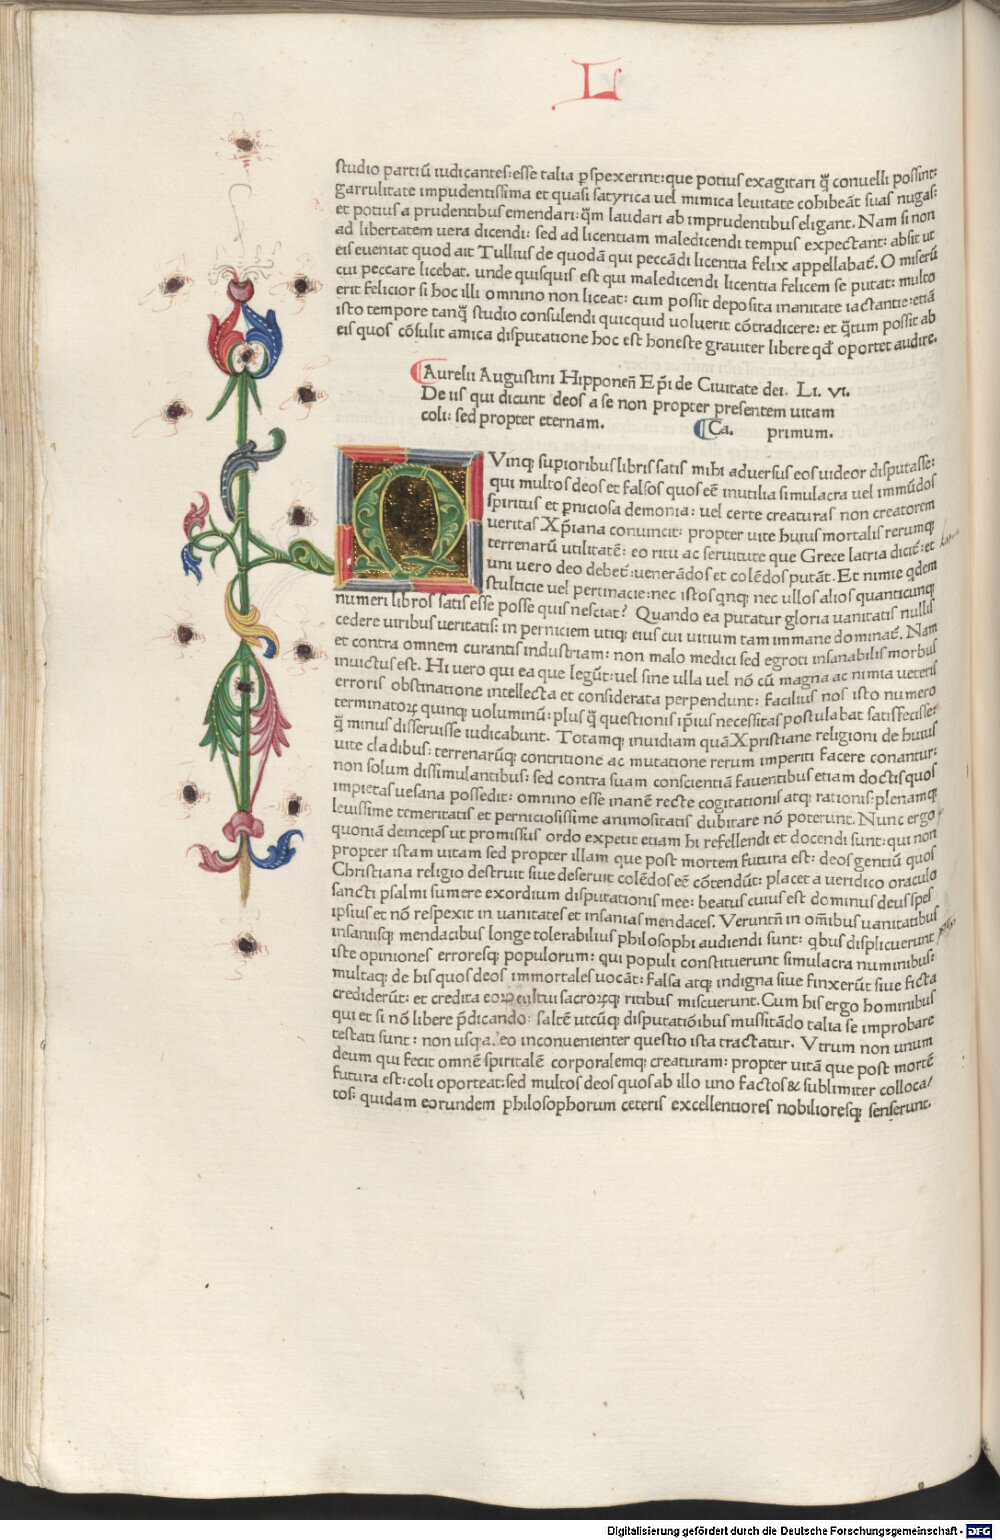 L
studio partiū iudicantes: esse talia ꝑspexerint: que potius exagitari q̄ȝ conuelli possint:
garrulitate impudentissima et quasi satyrica uel mimica leuitate cohibeāt suas nugas:
et potius a prudentibus emendari: q̄m laudari ab imprudentibus eligant. Nam si non
ad libertatem uera dicendi: sed ad licentiam maledicendi tempus expectant: absit ut
eis eueniat quod ait Tullius de quodā qui peccādi licentia felix appellabat̄. O miserū
cui peccare licebat. unde quisquis est qui maledicendi licentia felicem se putat: multo
erit felicior si hoc illi omnino non liceat: cum possit deposita inanitate iactantie: etiā
isto tempore tanq̄ȝ studio consulendi quicquid uoluerit cōtradicere: et q̄tum possit ab
eis quos cōsulit amica disputatione hoc est honeste grauiter libere qd̄ oportet audire.
Aurelii Augustini Hipponeñ Ep̄i de Ciuitate dei. Li. vi.
De iis qui dicunt deos a se non propter presentem uitam
coli: sed propter eternam. Ca. primum.
QVinqȝ supioribus libris satis mihi aduersus eos uideor disputasse:
qui multos deos et falsos quos eē inutilia simulacra uel immūdos
spiritus et ꝑniciosa demonia: uel certe creaturas non creatorem
ueritas Xp̄iana conuincit: propter uite huius mortalis rerumqȝ
terrenarū utilitatē: eo ritu ac seruitute que Grece latria dicit̄: et
uni uero deo debet̄: uenerādos et colēdos putāt. Et nimie qdem
stulticie uel pertinacie: nec istos qnqȝ nec ullos alios quanticunqȝ
numeri libros satis esse posse quis nesciat? Quando ea putatur gloria uanitatis nullis
cedere uiribus ueritatis: in perniciem utiqȝ eius cui uitium tam immane dominat̄. Nam
et contra omnem curantis industriam: non malo medici sed egroti insanabilis morbus
inuictus est. Hi uero qui ea que legūt: uel sine ulla uel nō cū magna ac nimia ueteris
erroris obstinatione intellecta et considerata perpendunt: facilius nos isto numero
terminatoꝝ quinqȝ uoluminū: plus q̄ȝ questionis ip̄ius necessitas postulabat satisfecisse:
q̄ȝ minus disseruisse iudicabunt. Totamqȝ inuidiam quā Xpristiane religioni de huius
uite cladibus: terrenarūqȝ contritione ac mutatione rerum imperiti facere conantur:
non solum dissimulantibus: sed contra suam conscientiā fauentibus etiam doctis quos
impietas uesana possedit: omnino esse inanē recte cogitationis atqȝ rationis: plenamqȝ
leuissime temeritatis et perniciosissime animositatis dubitare nō poterunt. Nunc ergo
quoniā deinceps ut promissus ordo expetit etiam hi refellendi et docendi sunt: qui non
propter istam uitam sed propter illam que post mortem futura est: deos gentiū quos
Christiana religio destruit siue deseruit colēdos eē cōtendūt: placet a ueridico oraculo
sancti psalmi sumere exordium disputationis mee: beatus cuius est dominus deus spes
ipsius et nō respexit in uanitates et insanias mendaces. Veruntn̄ in oīnibus uanitatibus
insaniisqȝ mendacibus longe tolerabilius philosophi audiendi sunt: qbus displicuerunt
iste opiniones erroresqȝ populorum: qui populi constituerunt simulacra numinibus:
multaqȝ de his quos deos immortales uocāt: falsa atqȝ indigna siue finxerūt siue ficta
crediderūt: et credita eoꝝ cultui sacroꝝqȝ ritibus miscuerunt. Cum his ergo hominibus
qui et si nō libere p̄dicando: saltē utcūqȝ disputatiōibus mussitādo talia se improbare
testati sunt: non usqa.eo inconuenienter questio ista tractatur. Vtrum non unum
deum qui fecit omnē spiritalē corporalemqȝ creaturam: propter uitā que post mortē
futura est: coli oporteat: sed multos deos quos ab illo uno factos & sublimiter colloca/
tos: quidam eorundem philosophorum ceteris excellentiores nobilioresqȝ senserunt.
Digitalisierung gefördert durch die Deutsche Forschungsgemeinschaft - DFG